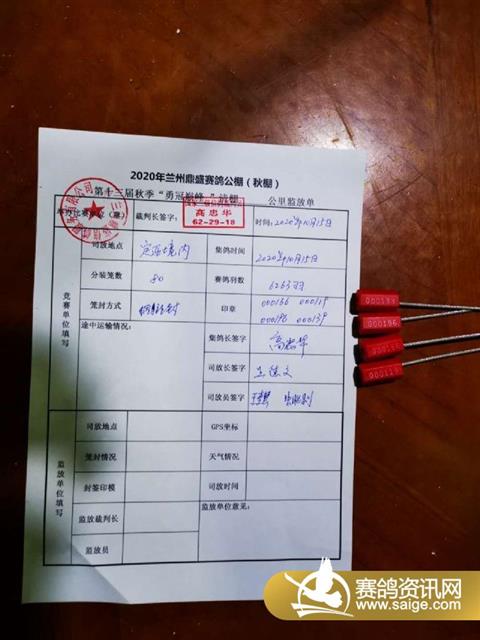 2020年兰州鼎盛赛鸽公棚（秋棚）
第十三届秋季“勇冠 ”
公里监放单
裁判长签字：
高忠华
62-29-18
时间：2020年10月15日
竞赛单位填写
司放地点 定西境内 集鸽时间 2020年10月15日
分装笼数 80 赛鸽羽数 6263羽
笼封方式 印章 000166 000119
000196 000139
途中运输情况： 集鸽长签字 高忠华
司放长签字
司放员签字
监放单位填写
司放地点 GPS坐标
笼封情况 天气情况
封签印模 司放时间
监放裁判长 监放单位意见：
监放员
000196
000119
赛鸽资讯网
www.saige.com